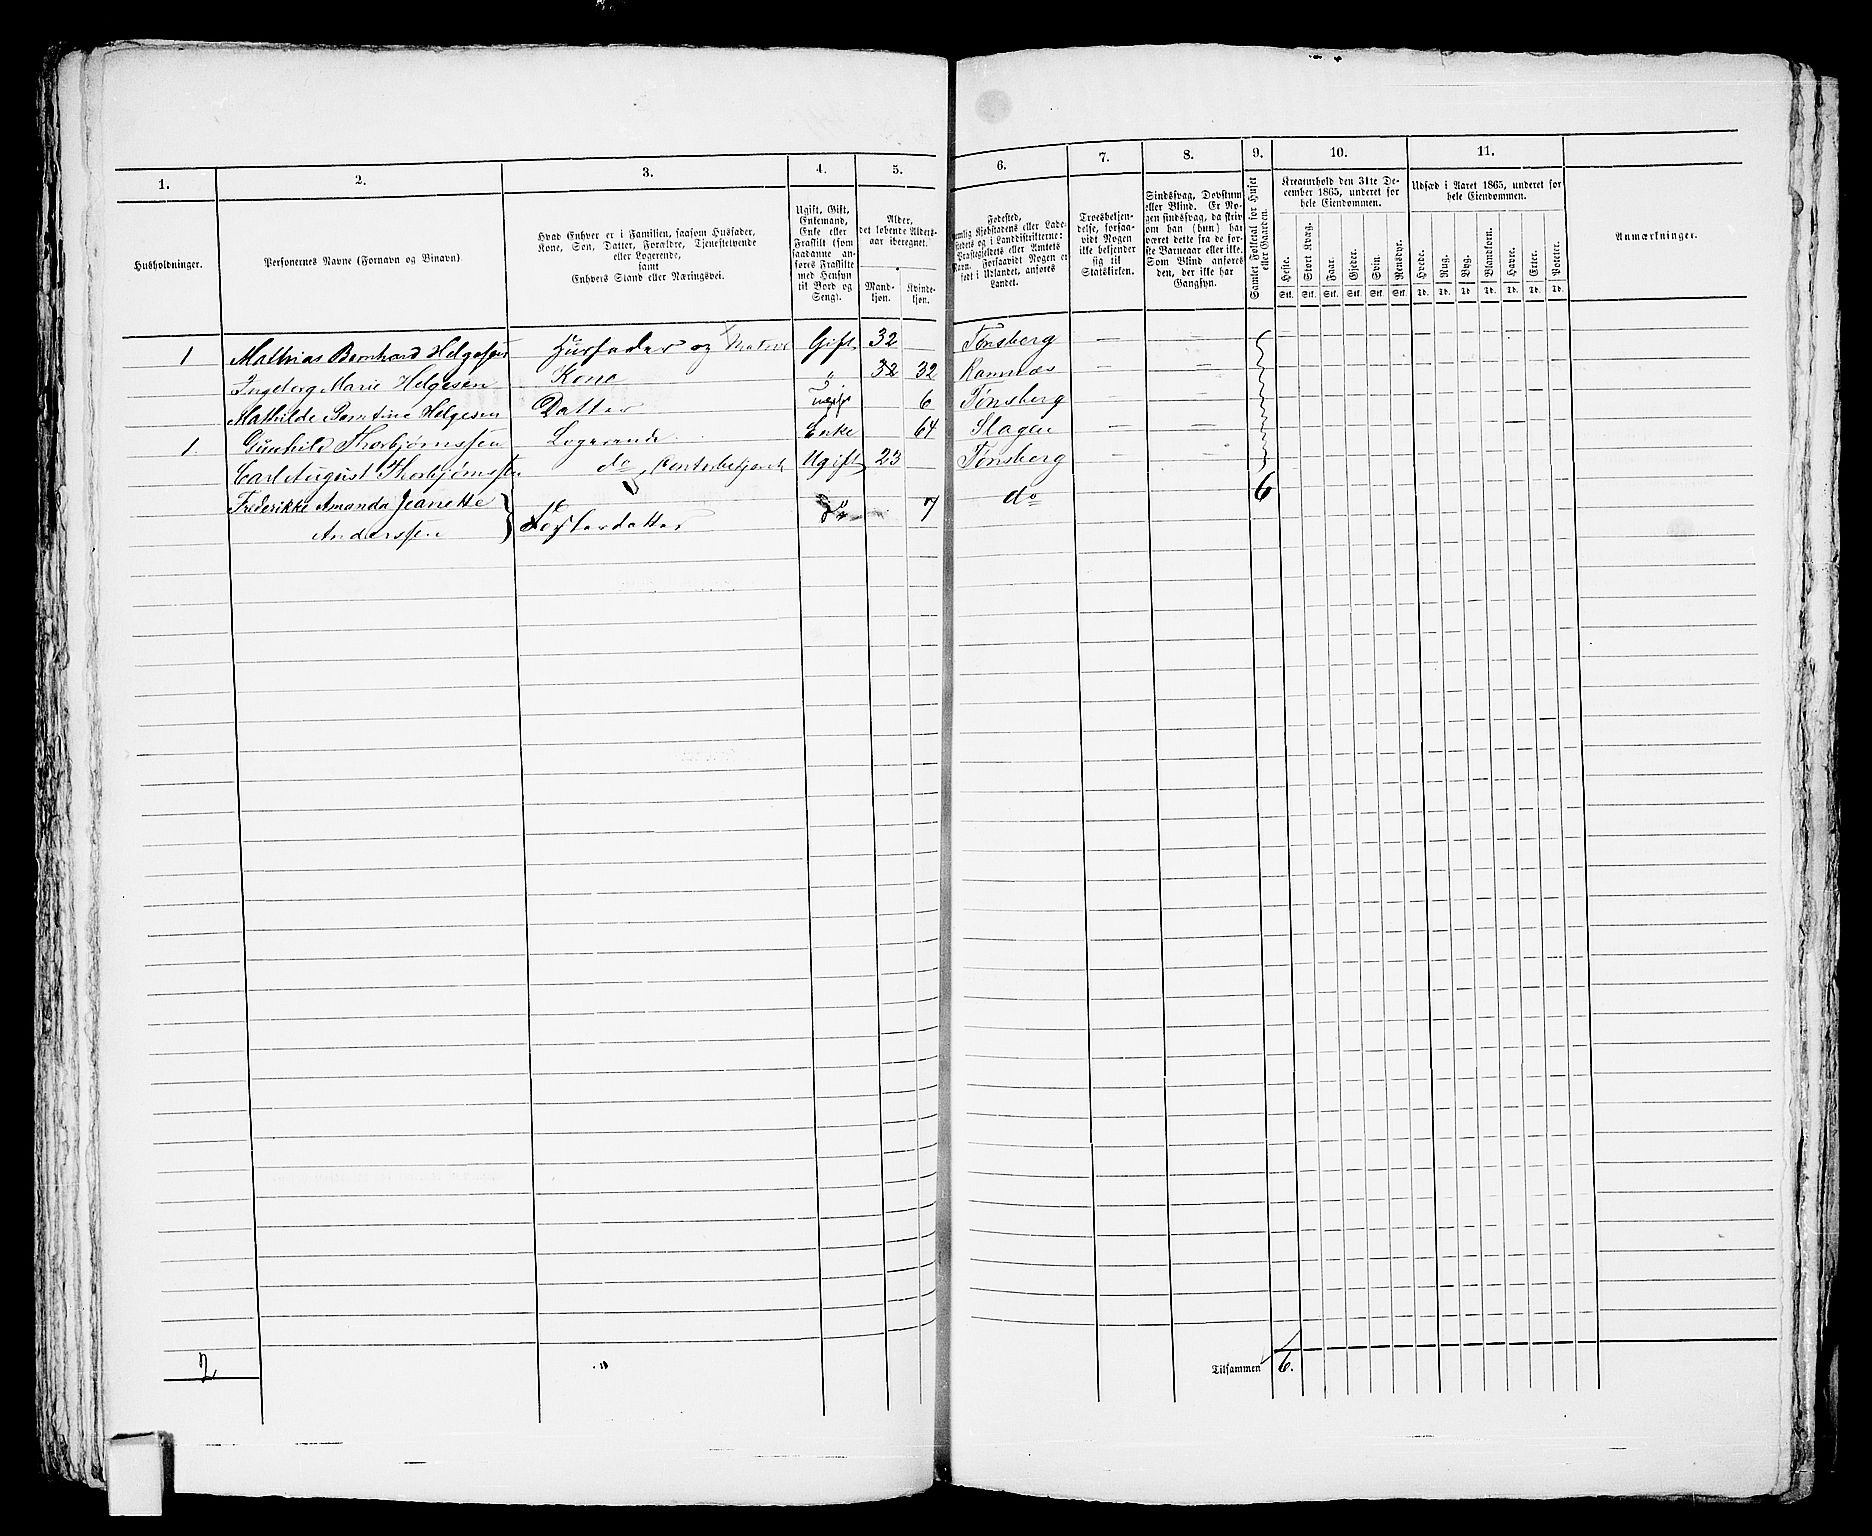 1. 2. 3. 4. 5. 6. 7. 8. 9. 10. 11.
Husholdninger.
Personernes Navne (Fornavn og Binavn).
Hvad Enhver er i Familien, saasom Husfader,
Kone, Søn, Datter, Forældre, Tjenestetyende
eller Logerende,
samt
Enhvers Stand eller Næringsvei.
Ugift, Gift,
Enkemand,
Enke eller
Fraskilt (som
saadanne an-
føres Fraskilte
med Hensyn
til Bord og
Seng).
Alder,
det løbende Alders-
aar iberegnet.
Mand-
kjøn.
Kvinde-
kjøn.
Fødested,
nemlig Kjøbstadens eller Lade-
stedets og i Landdistrikterne:
Præstegjeldets eller Amtets
Navn. Forsaavidt Nogen er
født i Udlandet, anføres
Landet.
Troesbekjen-
delse, forsaa-
vidt Nogen
ikke bekjender
sig til
Statskirken.
Sindssvag, Døvstum
eller Blind. Er No-
gen sindssvag, da skriv
om han (hun) har
været dette fra de før-
ste Barneaar eller ikke.
Som Blind anføres
den, der ikke har
Gangsyn.
Samlet Folketal for Huset
eller Gaarden.
Kreaturhold den 31te De-
cember 1865, underet for
hele Eiendommen.
Heste. Stort Kvæg. Faar. Gjeder. Svin. Rensdyr.
Stk. Stk. Stk. Stk. Stk. Stk.
Udsæd i Aaret 1865, underet for
hele Eiendommen.
Hvede. Rug. Byg. Blandkorn. Havre. Erter. Poteter.
Td. Td. Td. Td. Td. Td. Td.
Anmærkninger.
1 Mathias Bernhard Helgesen Husfader og Matros Gift 32 Tønsberg — —
Ingeborg Marie Helgesen Kone " 32 32 Ramnæs — —
Mathilde Helgesen Datter ugift 6 Tønsberg — —
1. Gunhild Thorbjørnssen Logerende Enke 64 Slagen — —
Carl August Thorbjørnssen do, Ugift 23 Tønsberg — —
Frederikke Amanda Jeanette
Anderssen } Losterdatter do 7 do 6
2
Tilsammen 6.